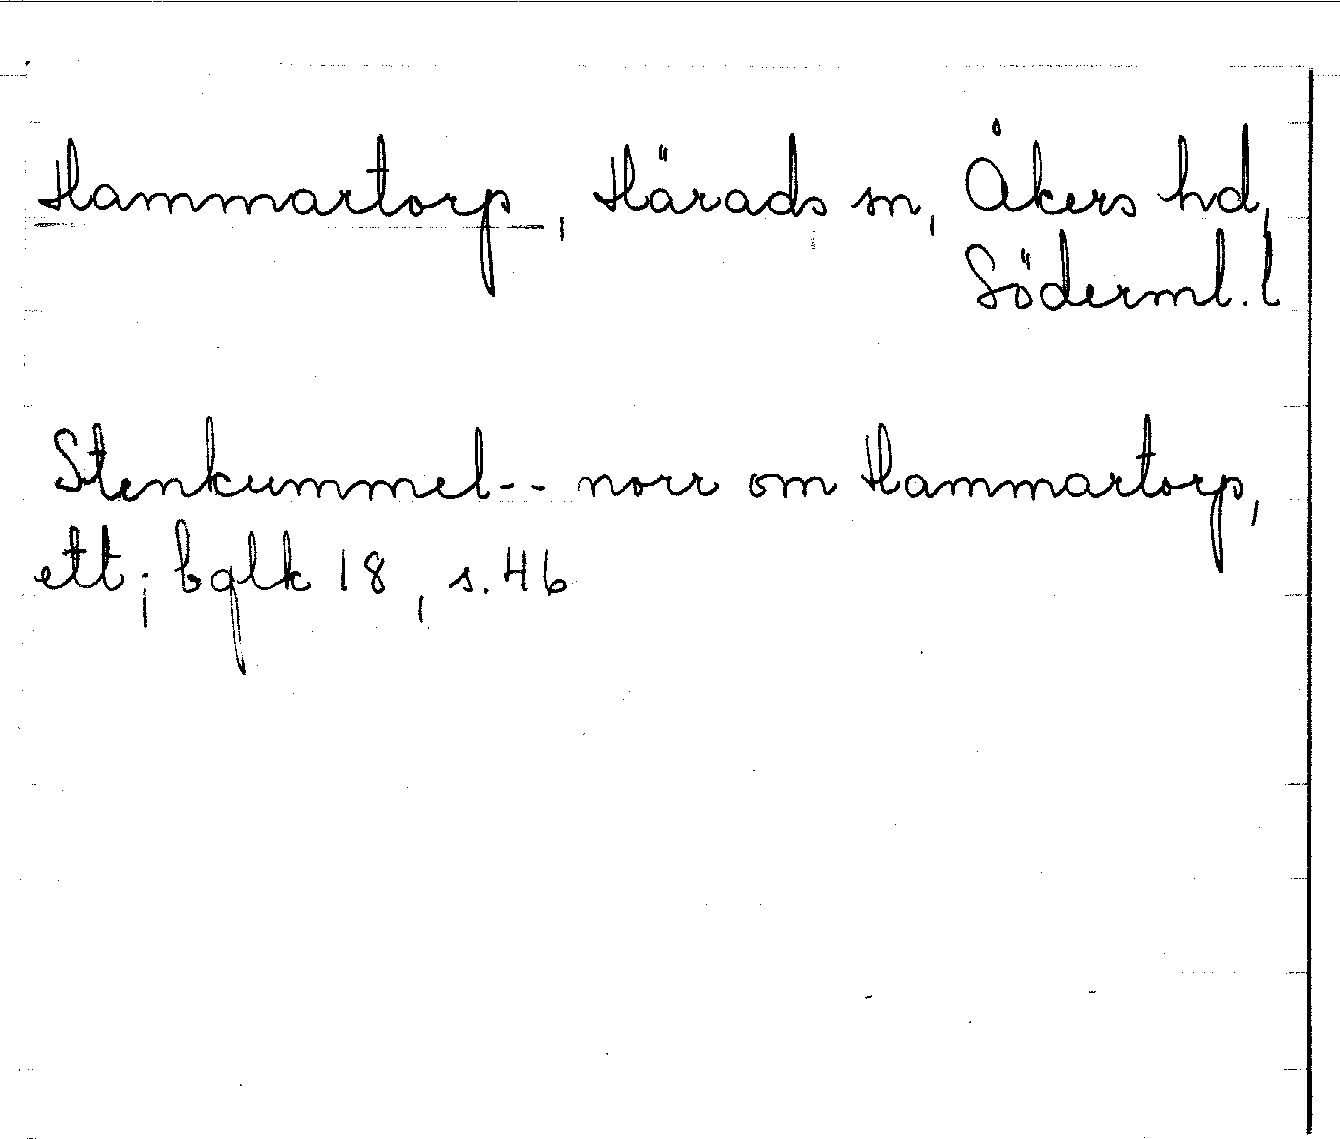 Hammartorp, Härads sn, Åkers hd,
Söderml. l
Stenkummel-- norr om Hammartorp,
ett; bqlk 18, s. 46